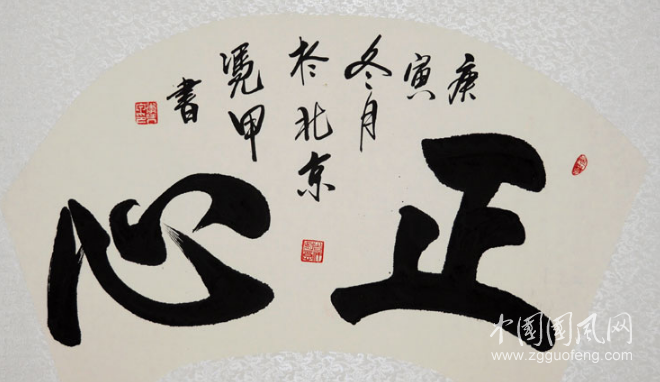 正心
庚
寅
冬月
於北京
甲
書
中国国风网
www.zgguofeng.com